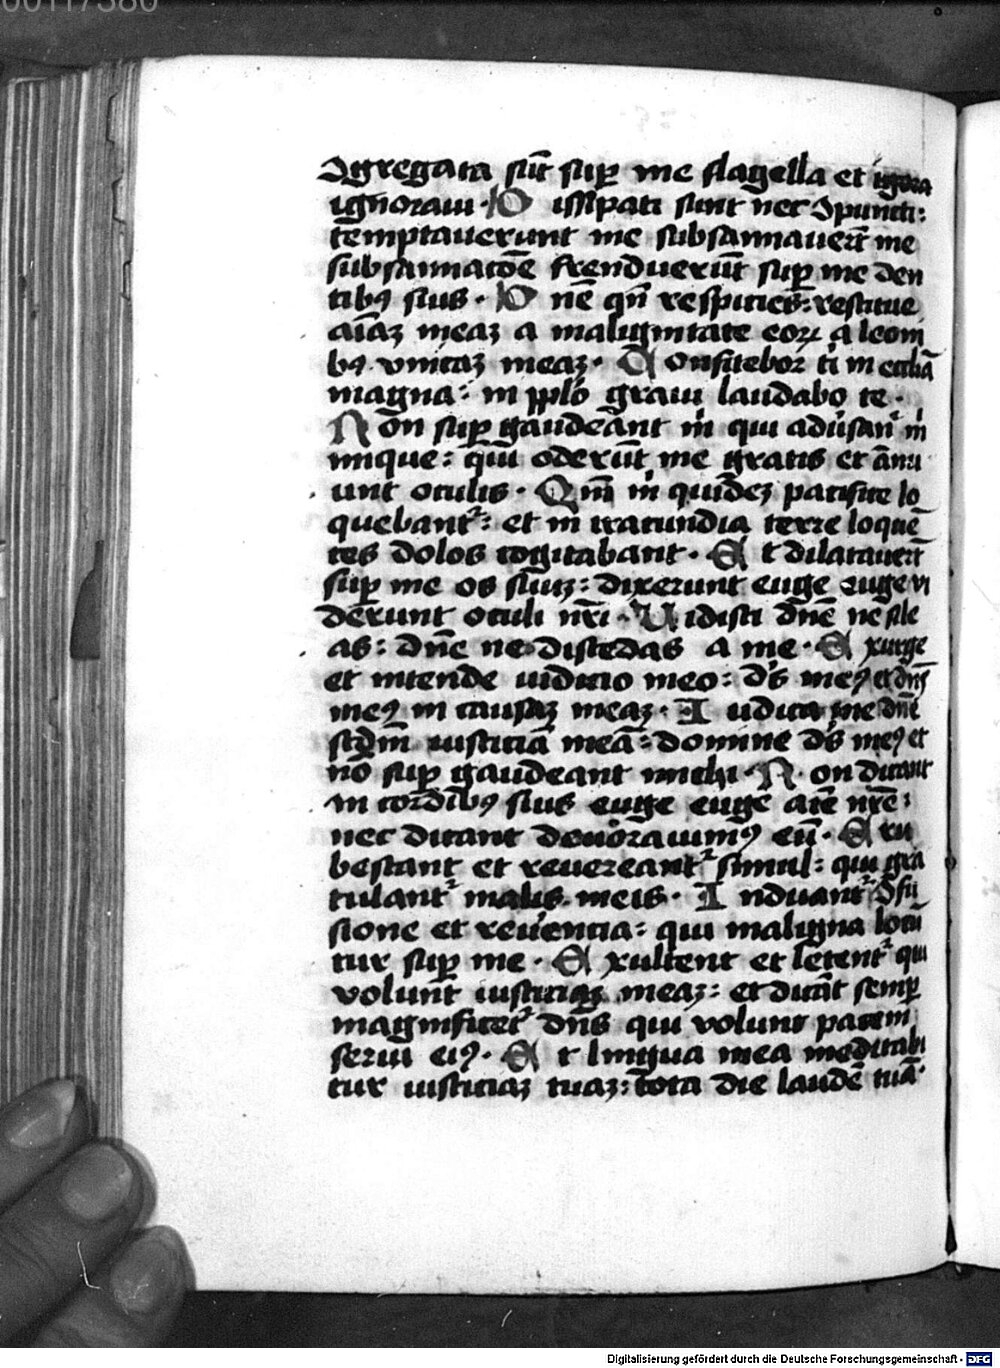 00117380
ꝯgregata sūt suꝑ me flagella et
ignoraui · D issipati sunt nec ꝯpuncti:
temptauerunt me subsannauerūt me
subsannacōe frenduerūt suꝑ me den
tibꝫ suis · D ne qn̄ respicies: restitue
aīaꝫ meaꝫ a malignitate eoꝝ a leoni
bꝫ vnicaꝫ meaꝫ · C onfitebor ti in eccliā
magna: in pplo graui laudabo te ·
N on suꝑ gaudeant m̄ qui aduſant̄ m̄
inique: qui oderūt me gratis et ānu
unt oculis · Q m̄ m̄ quideꝫ pacifice lo
quebant᷑: et in iracundia terre loquē
tes dolos cogitabant · E t dilatauerūt
suꝑ me os suuꝫ: dixerunt euge euge vi
derunt oculi nr̄i · V idisti dn̄e ne sile
as: dn̄e ne discedas a me · E xurge
et intende iudicio meo: ds̄ meꝰ et dn̄s
meꝰ in causaꝫ meaꝫ · I udica me dn̄e
scd̄m iusticiā meā: domine ds̄ meꝰ et
nō suꝑ gaudeant michi · N on dicant
in cordibꝰ suis euge euge aīe nr̄e:
nec dicant deuorauimꝰ eū · E ru
bescant et reuereant᷑ simul: qui gra
tulant᷑ malis meis · I nduant᷑ ꝯfu
sione et reuerentia: qui maligna locū
tur suꝑ me · E xultent et letent᷑ qui
volunt iusticiaꝫ meaꝫ: et dicāt semꝑ
magnificet᷑ dn̄s qui volunt pacem
serui eiꝰ · E t lingua mea meditabi
tur iusticiaꝫ tuaꝫ: tota die laudē tuā ·
Digitalisierung gefördert durch die Deutsche Forschungsgemeinschaft - DFG